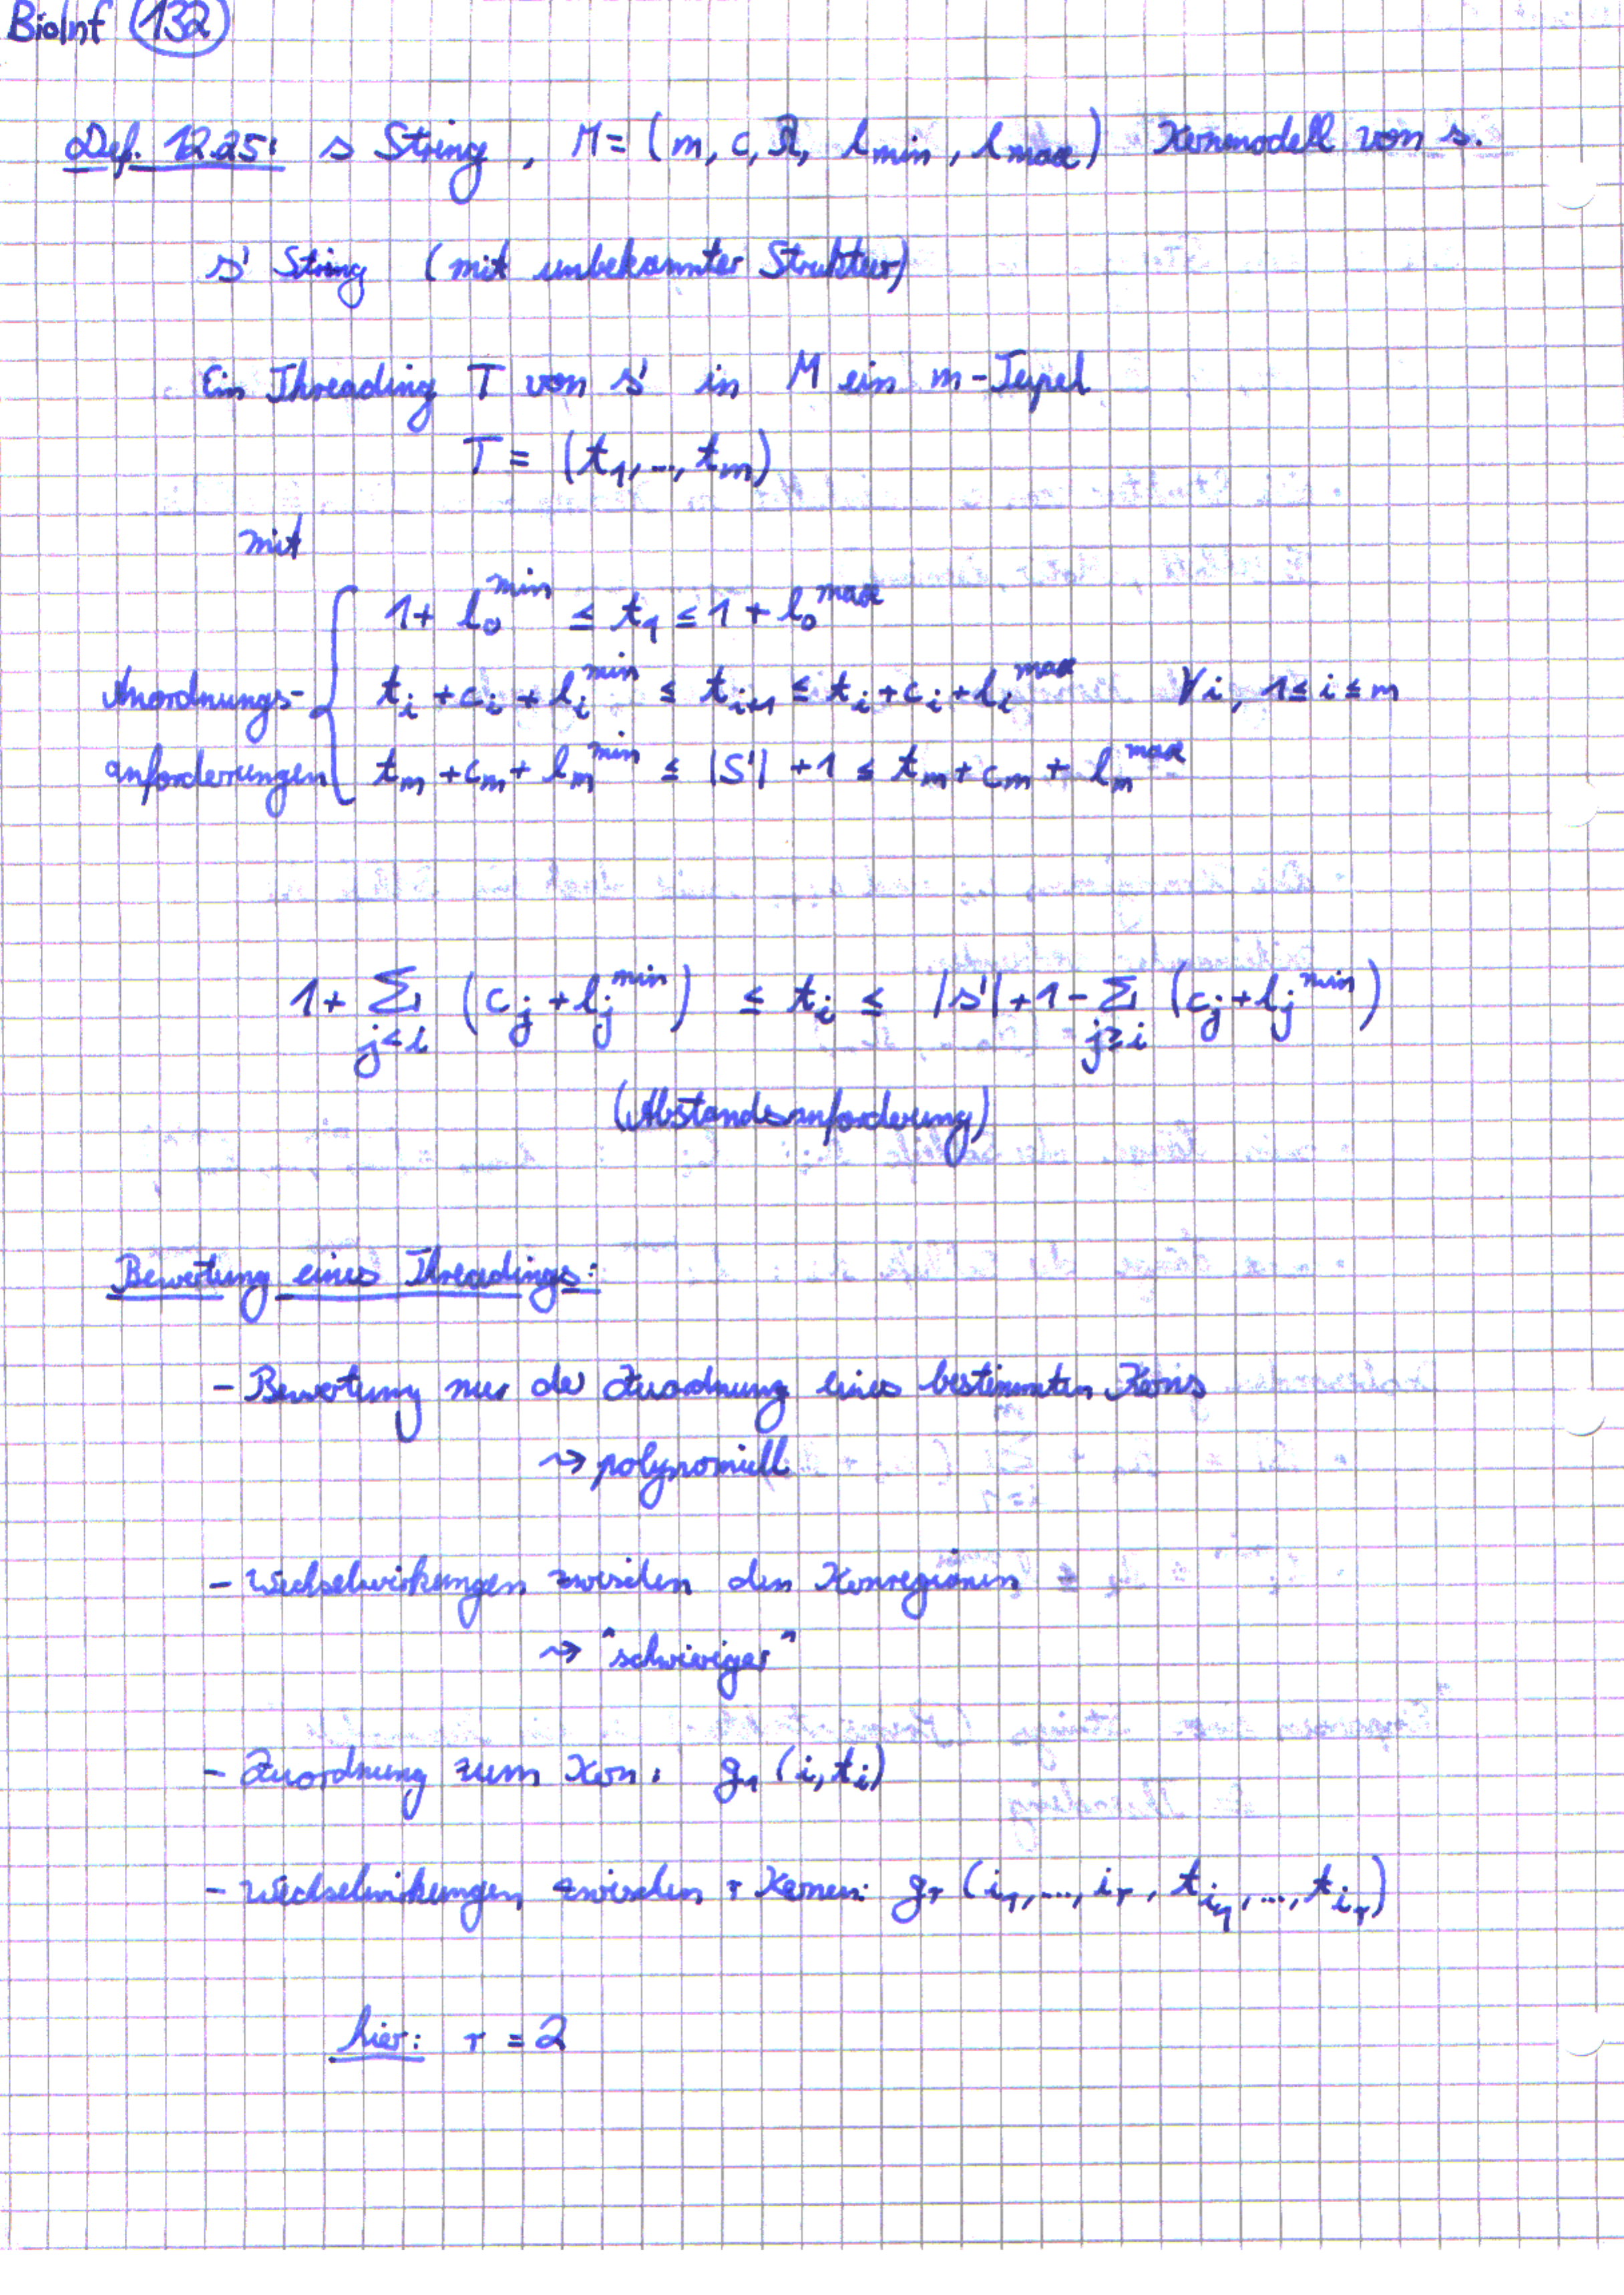 BioInf 132
Def. 12.25: s String, M = (m, c, λ, l_min, l_max) Kernmodell von s.
s' String (mit unbekannter Struktur)
Ein Threading T von s' in M ein m-Tupel
T = (t_1, ..., t_m)
mit
1 + l_0^min ≤ t_1 ≤ 1 + l_0^max
Anordnungs- t_i + c_i + l_i^min ≤ t_{i+1} ≤ t_i + c_i + l_i^max ∀i, 1 ≤ i ≤ m
anforderungen t_m + c_m + l_m^min ≤ |S'| + 1 ≤ t_m + c_m + l_m^max
1 + Σ_{j<i} (c_j + l_j^min) ≤ t_i ≤ |s'| + 1 - Σ_{j≥i} (c_j + l_j^min)
(Abstandsanforderung)
Bewertung eines Threadings:
- Bewertung nur der Zuordnung eines bestimmten Kerns
⇝ polynomiell
- Wechselwirkungen zwischen den Kernregionen
⇝ "schwieriger"
- Zuordnung zum Kern: g_1 (i, t_i)
- Wechselwirkungen zwischen r Kernen: g_r (i_1, ..., i_r, t_{i_1}, ..., t_{i_r})
hier: r = 2